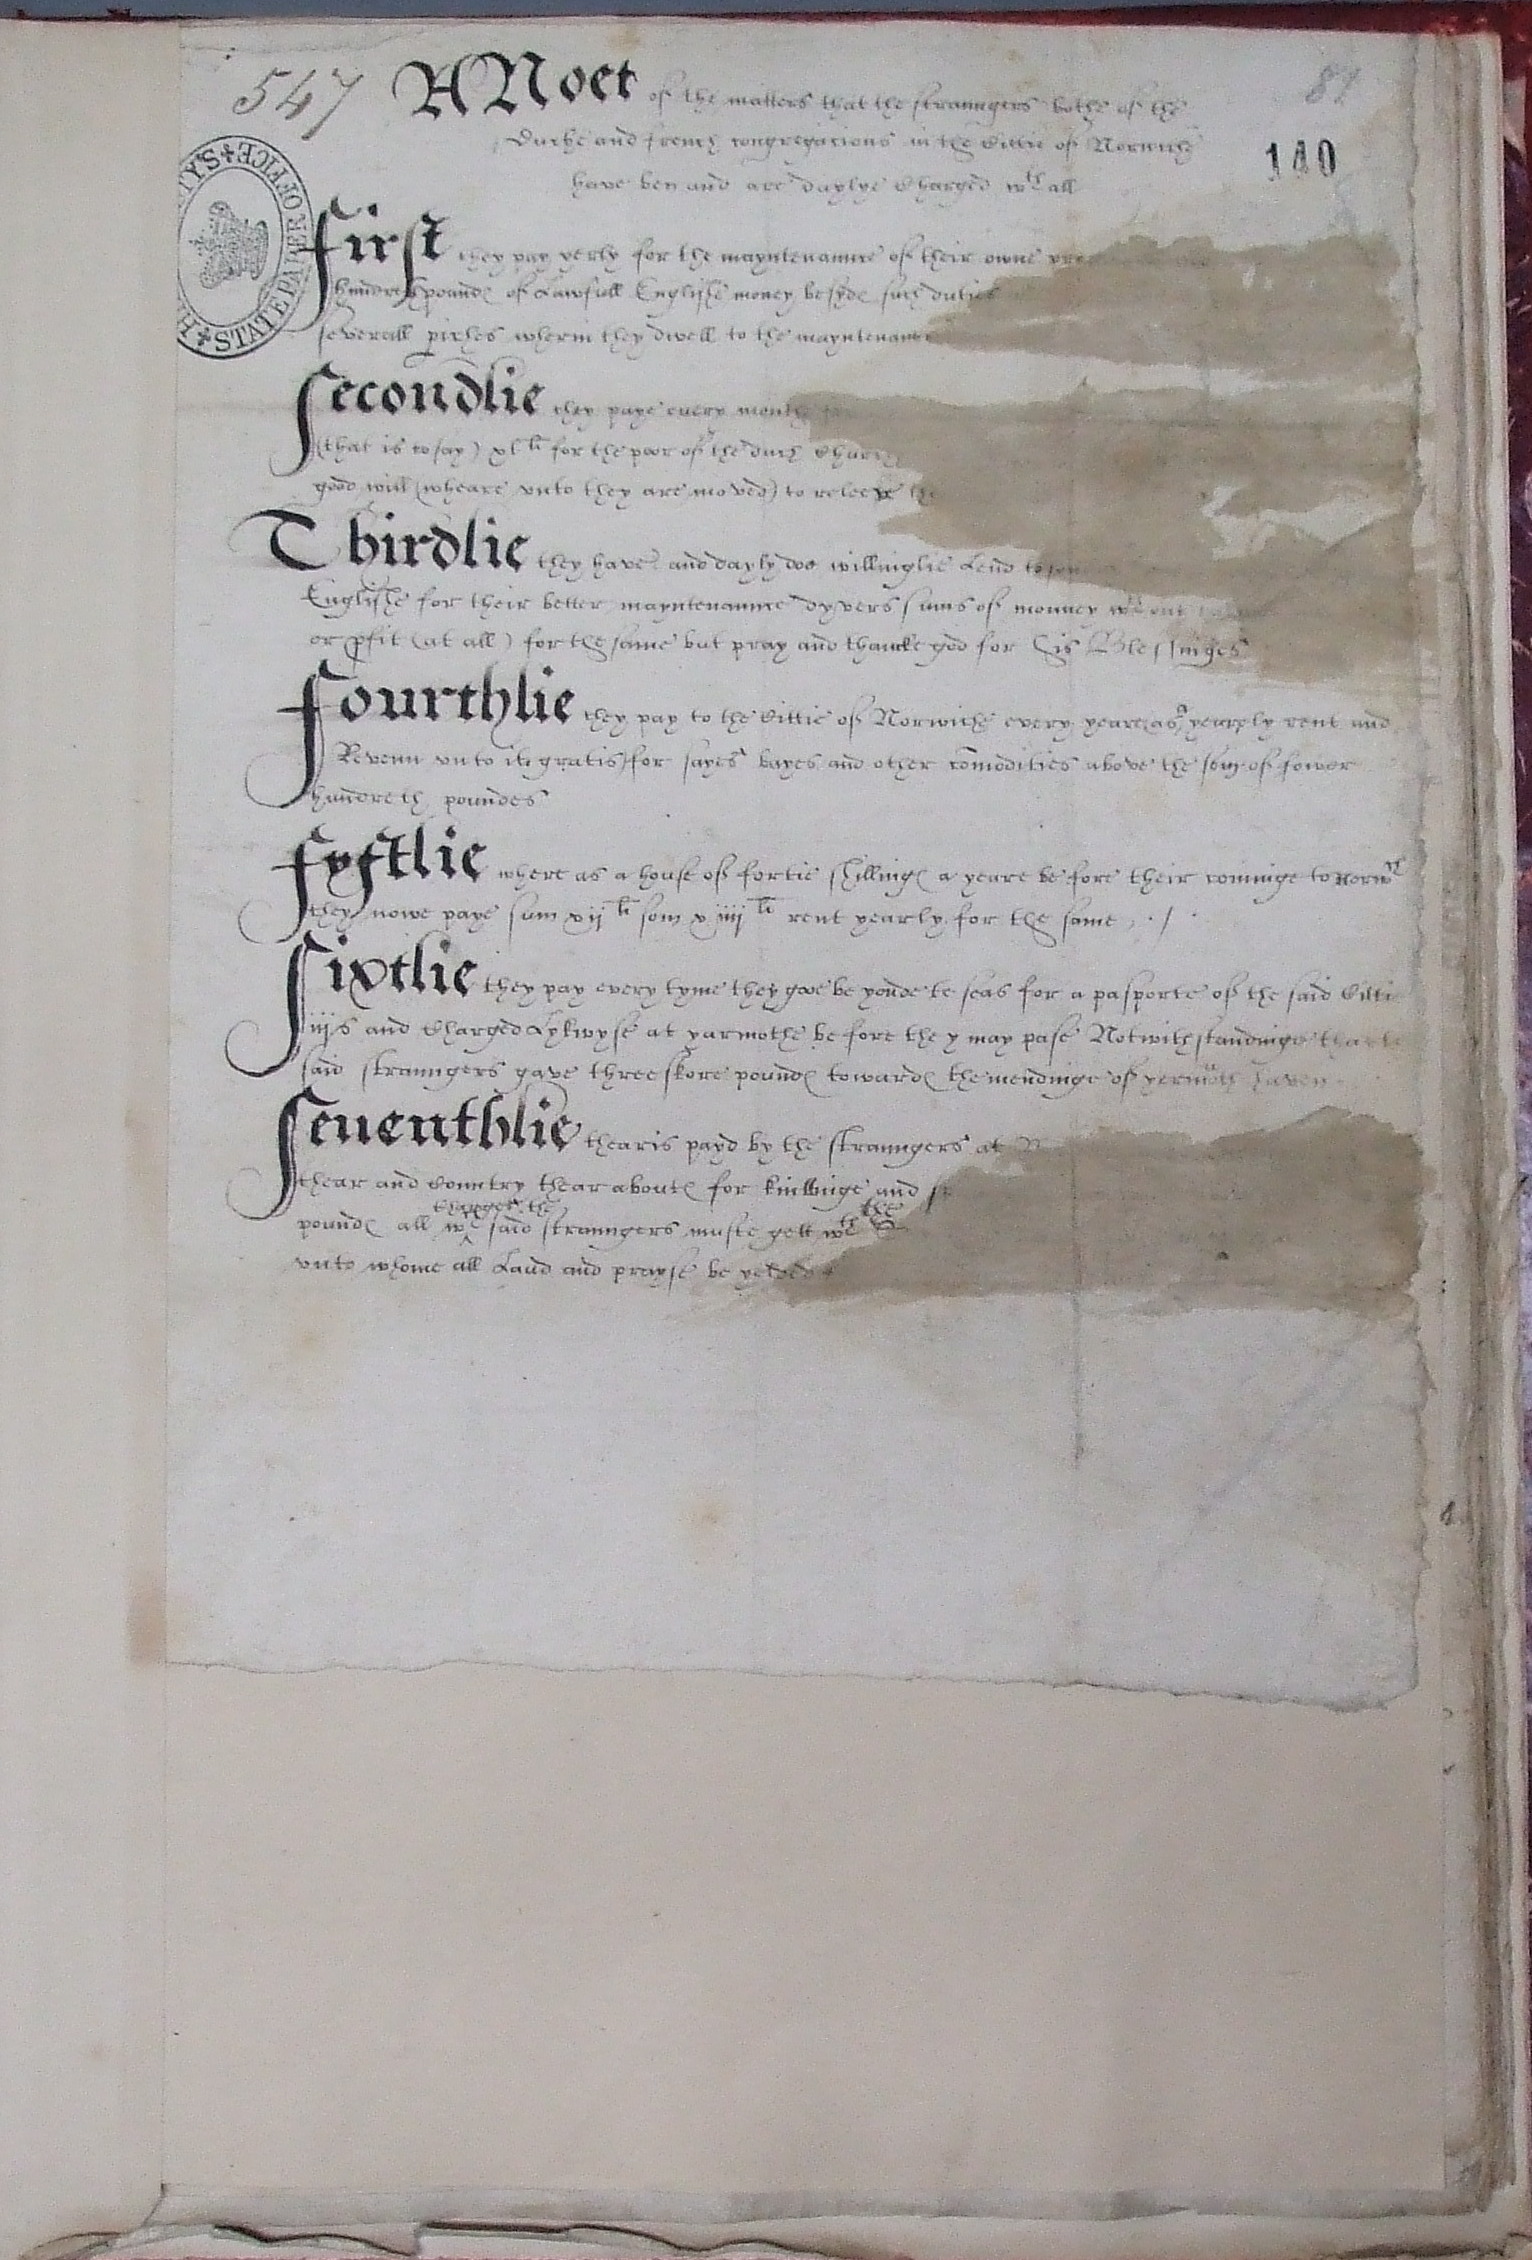 547 A Noet of the matters that the straungers bothe of the 82
Dutche and french congregacions in the Cittie of Norwich 140
have ben and are daylye Charged wth all
STATE PAPER OFFICE
First they pay yerly for the mayntenaunce of their owne
hundreth pounds of Lawfull Englishe money besyds such duties
severall pishes wherin they dwell to the mayntenaunce
Secondlie they paye every monthe
(that is to say) xl li for the poor of the duch Church
good will (wheare unto they are moved) to releeve the
Thirdlie they have and dayly doe willinglie Lend to
Englishe for their better mayntenaunce dyvers sums of monney wthout
or pfit (at all) for the same but pray and thancke god for his Blessinges
Fourthlie they pay to the Cittie of Norwiche every yeare (as a yearly rent and
Revenu unto it gratis) for sayes bayes and other comodities above the som of fower
hundreth poundes
Fyftlie where as a house of fortie shillings a yeare before their cominge to Norwch
they nowe paye sum xij li som xiiij li rent yearly for the same ./.
Sixtlie they pay every tyme they goe be yonde te seas for a pasporte of the said Cittie
iiijs and Charged Lykwyse at yarmothe be fore the y may pase Notwithstandinge that te
said straungers gave three skore pounds towards the mendinge of yermuth haven
Seuenthlie thearis payd by the straungers at N
thear and Country thear abouts for kembinge and sp
pounds all wch charges the said straungers muste gett wth the
unto whome all Laud and prayse be yelded